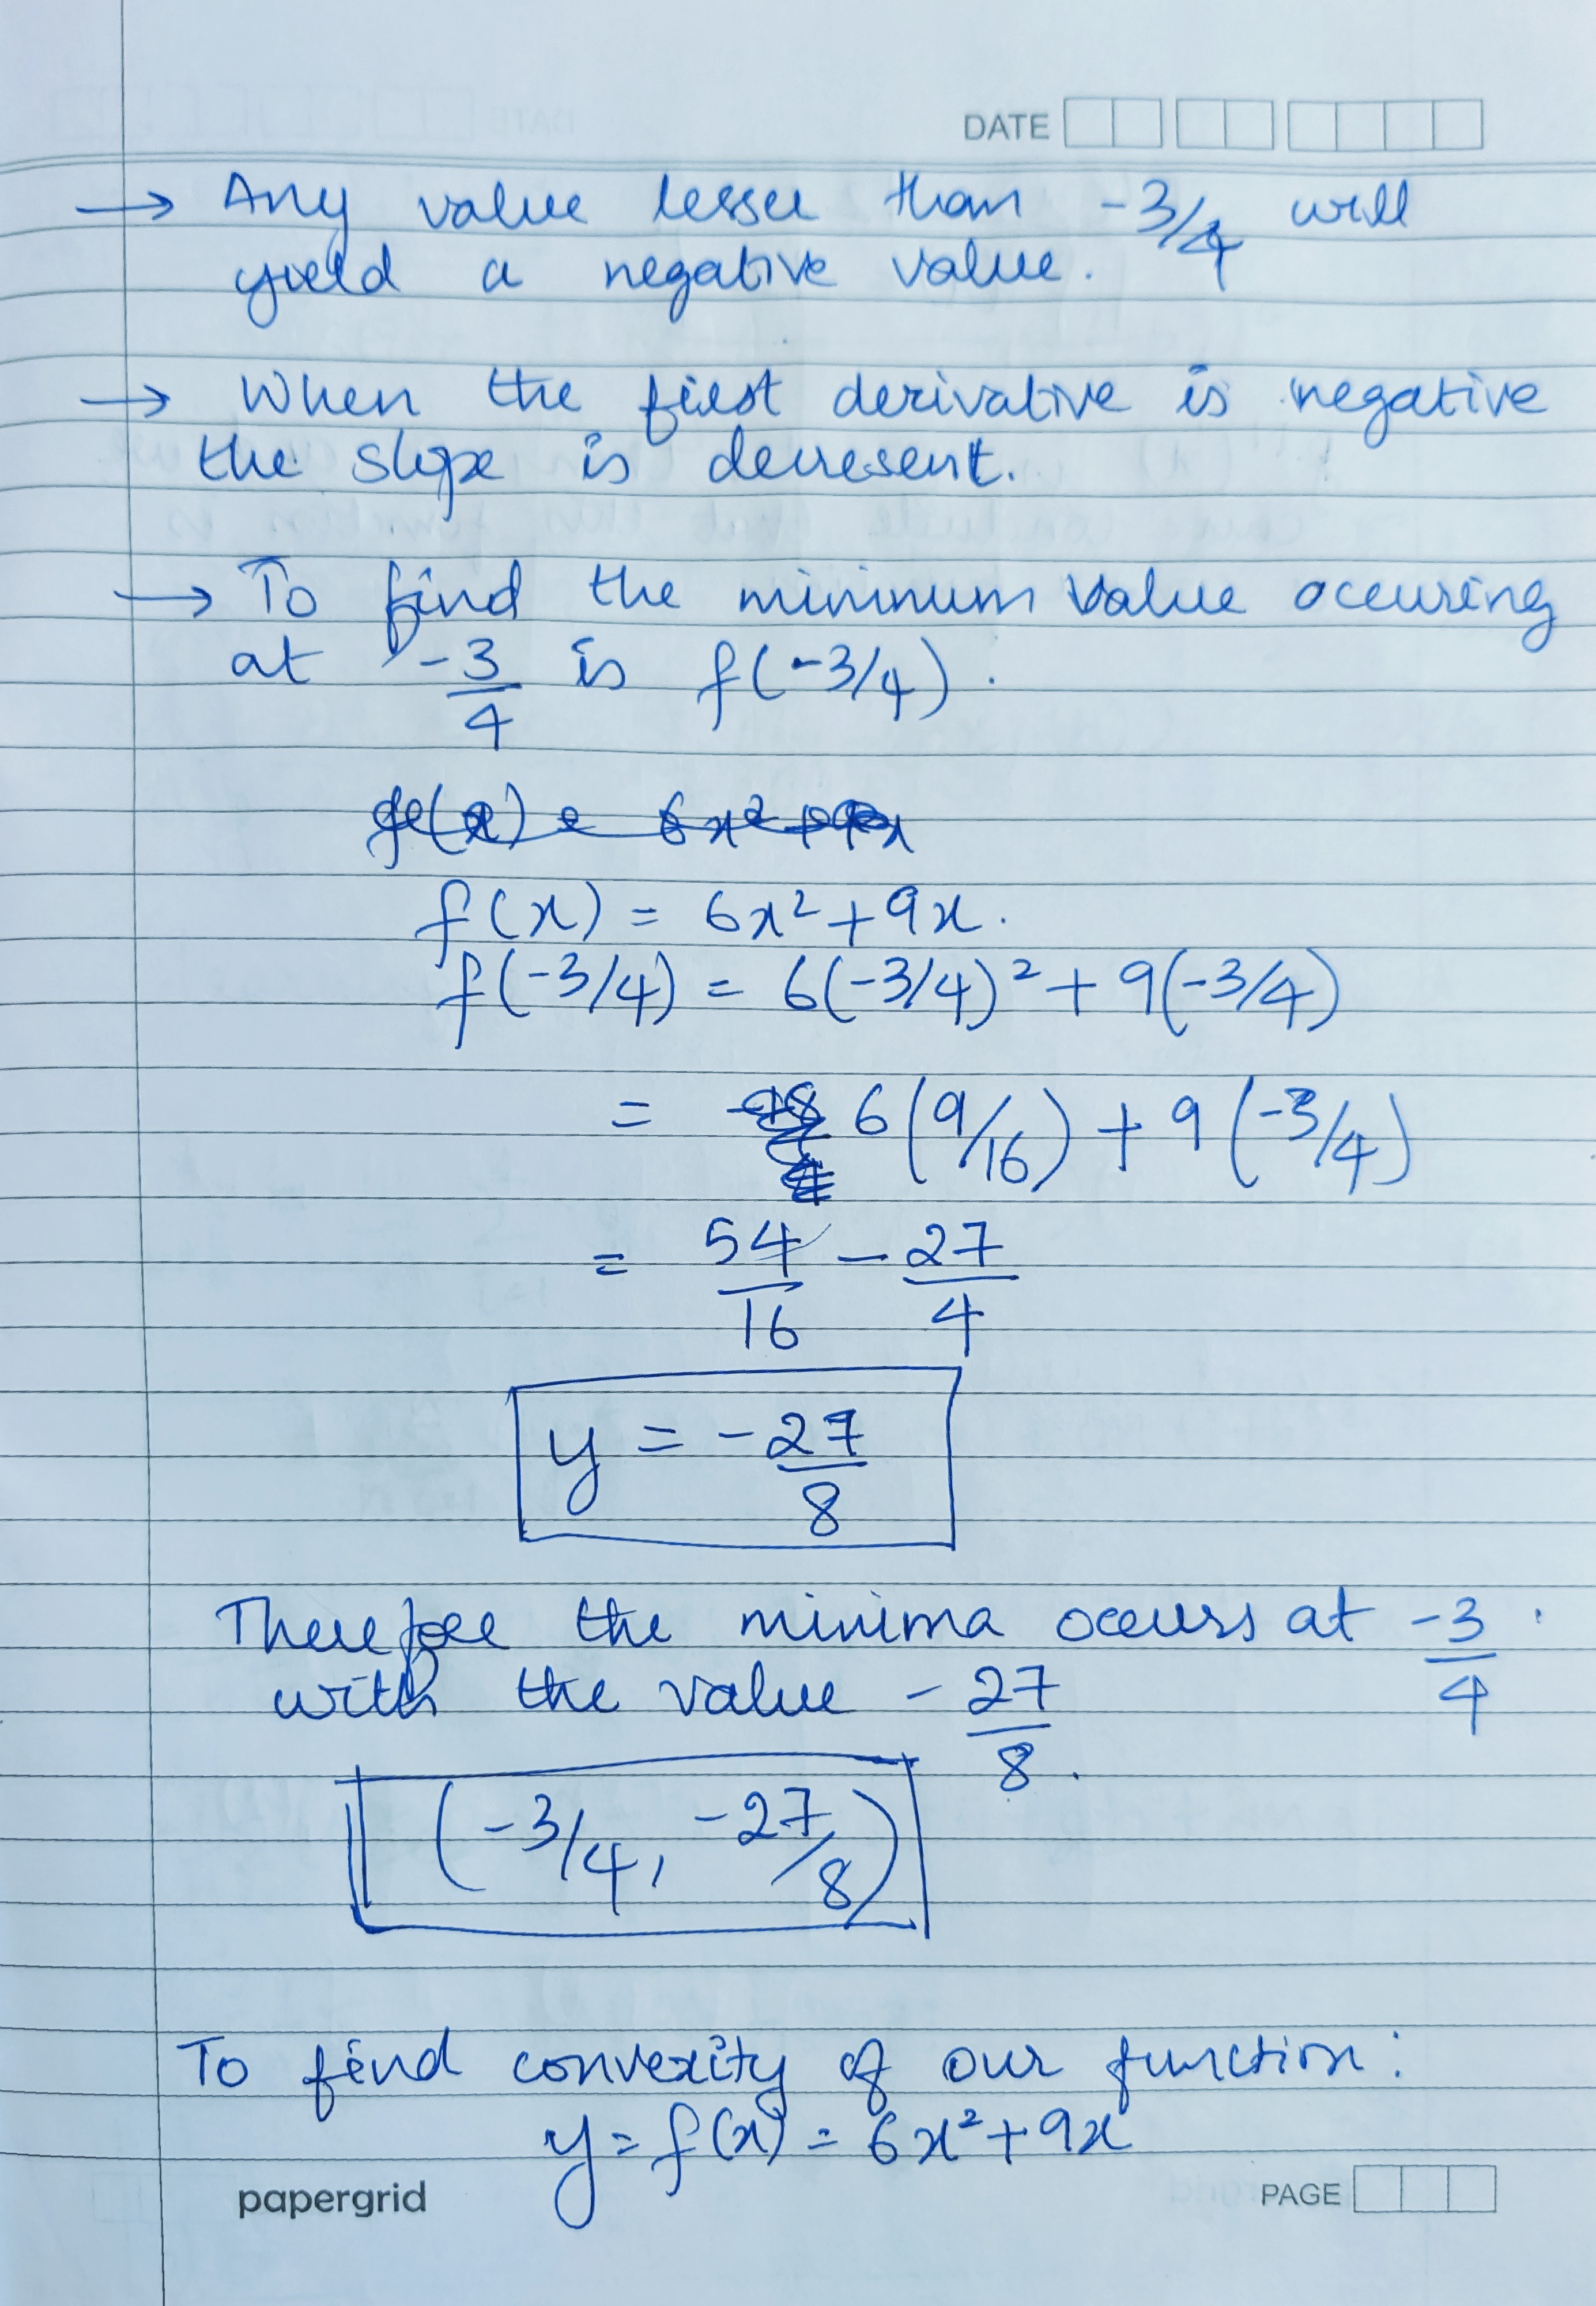 DATE
→ Any value lesser than -3/4 will
yield a negative value.
→ When the first derivative is negative
the slope is decresent.
→ To find the mininum value occuring
at -3/4 is f(-3/4).
f(x) = 6x²+9x.
f(-3/4) = 6(-3/4)²+9(-3/4)
= 6(9/16)+9(-3/4)
= 54/16 - 27/4
y = -27/8
Therefore the minima occurs at -3/4.
with the value -27/8.
(-3/4, -27/8)
To find convexity of our function:
y=f(x) = 6x²+9x
papergrid
PAGE